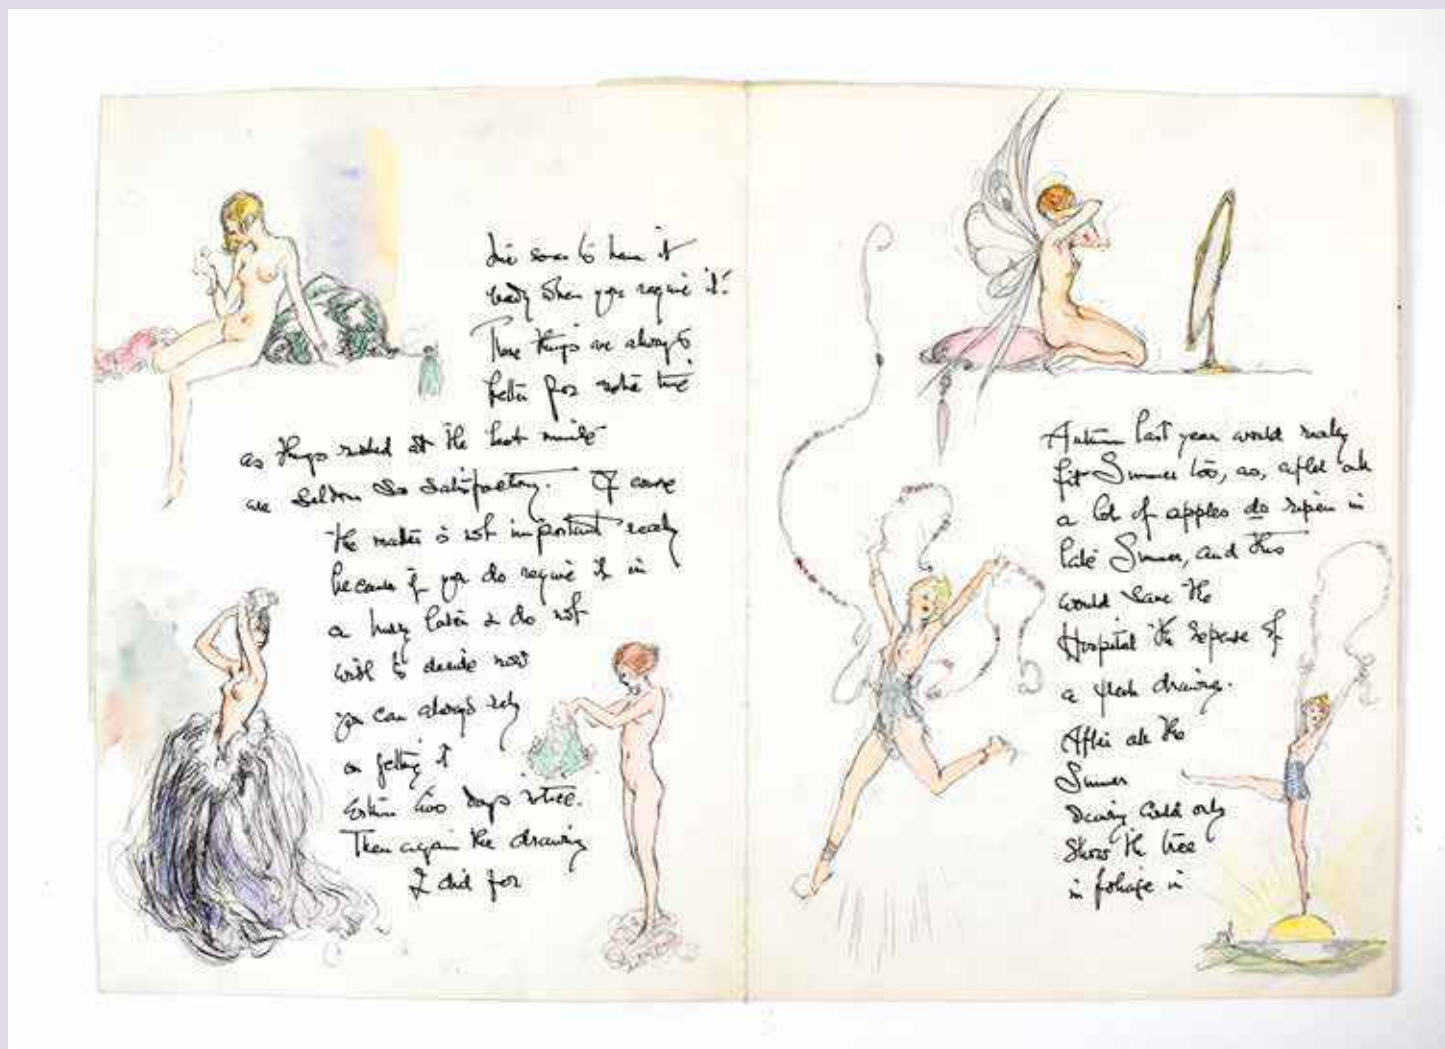 to have it
ready when you require it.
These things are always
better for
as things rushed at the last minute
are seldom so satisfactory. Of course
the matter is not important really
because if you do require it in
a hurry later & do not
wish to decide now
you can always rely
on getting it
within two days notice.
Then again the drawing
I did for
Autumn last year would really
fit Summer too, as, after all
a lot of apples do ripen in
late Summer, and this
would save the
Hospital the expense of
a fresh drawing.
After all the
Summer
drawing could only
show the tree
in foliage in